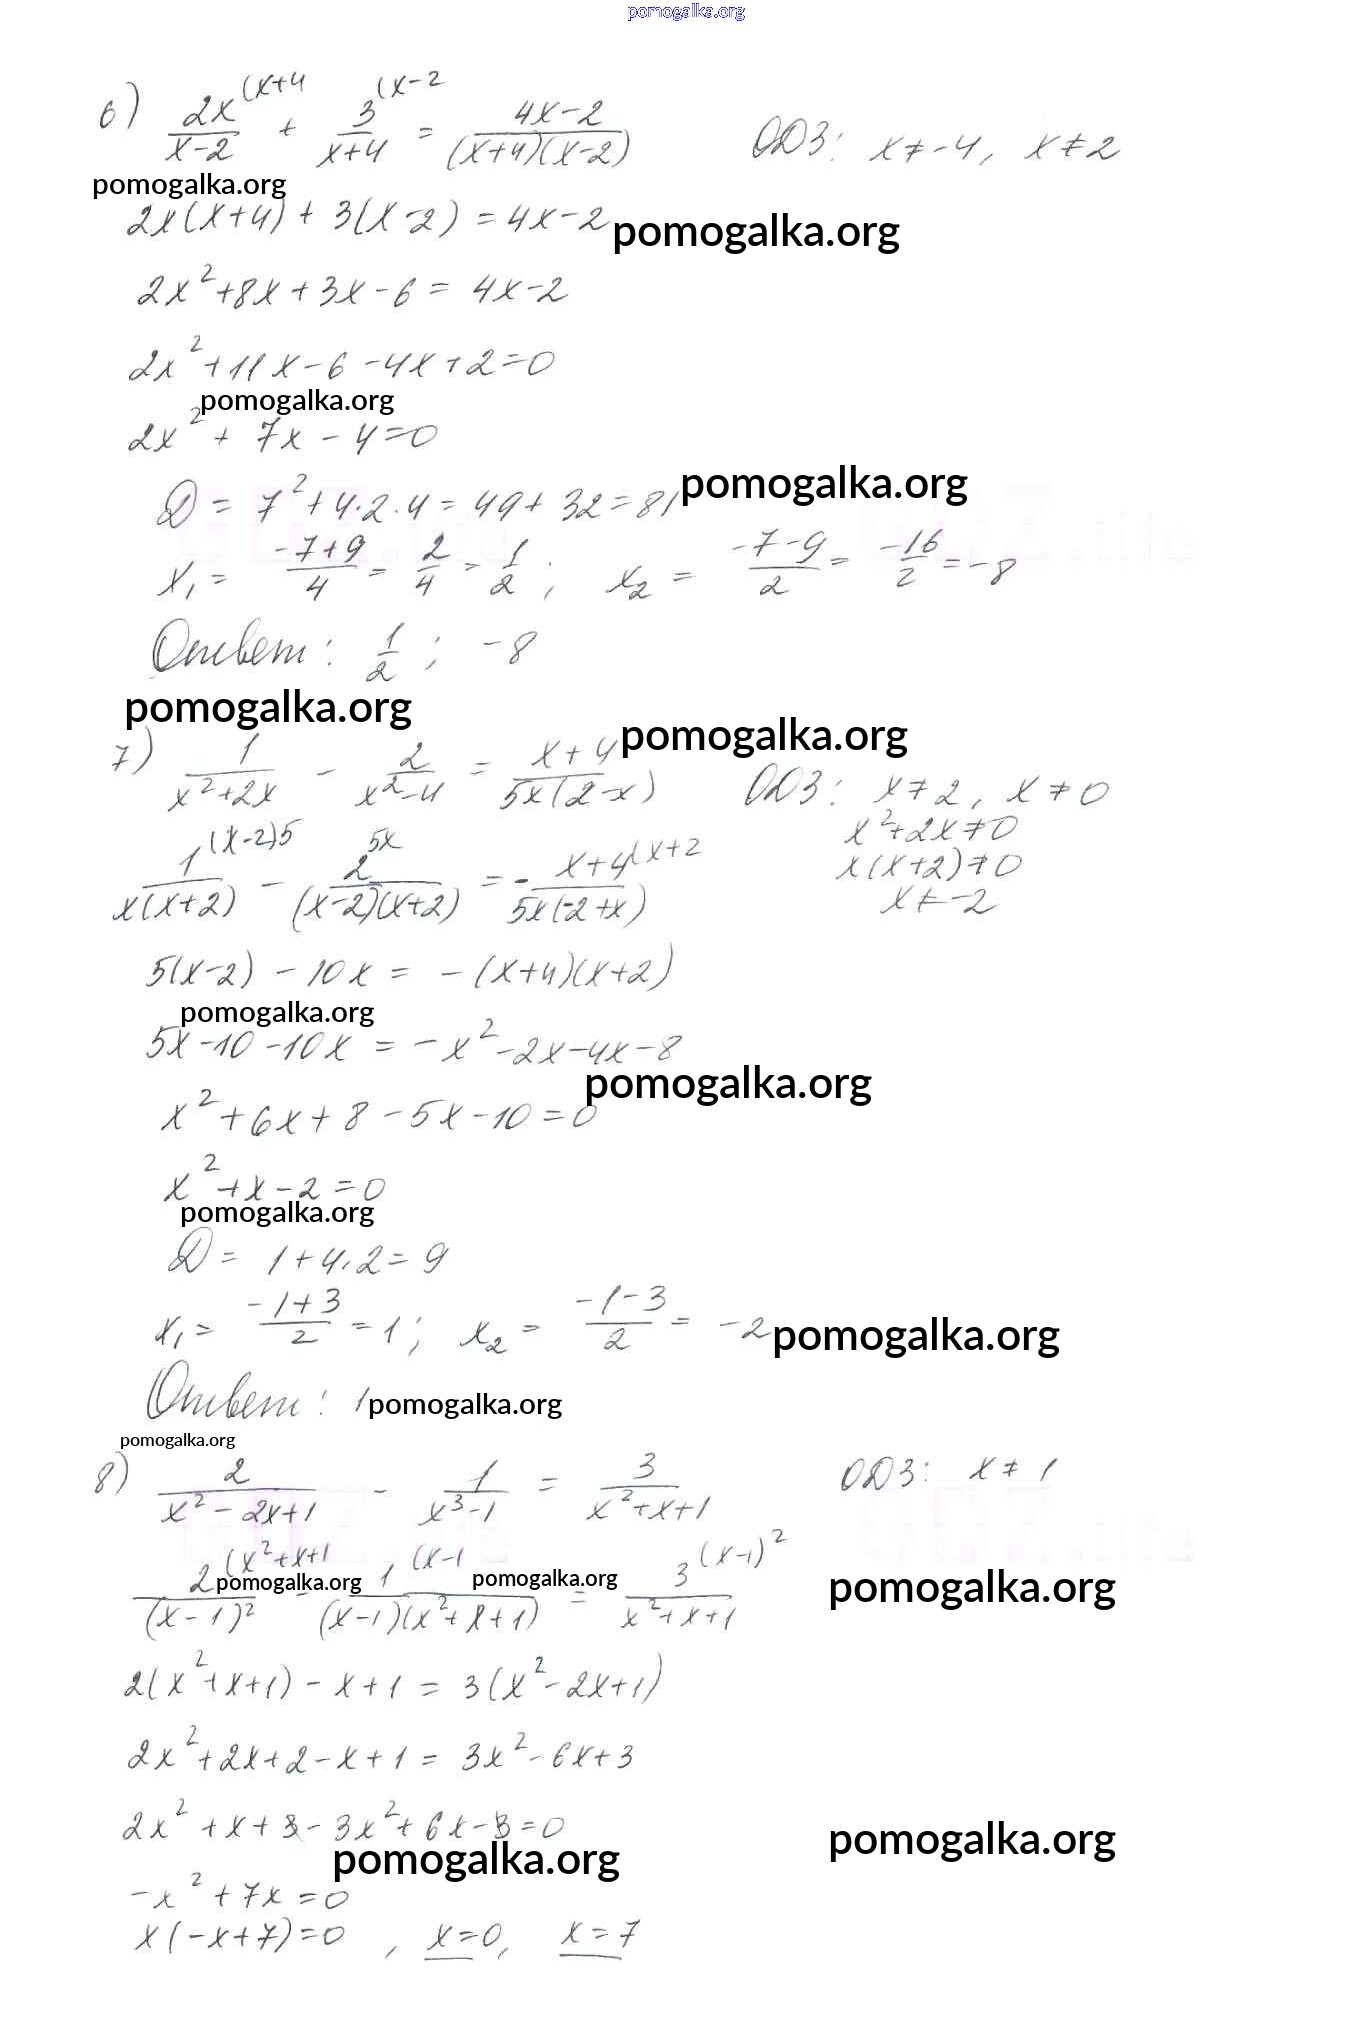 pomogalka.org
6) 2x^(x+4 / x-2 + 3^(x-2 / x+4 = 4x-2 / (x+4)(x-2) ОДЗ: x≠-4, x≠2
pomogalka.org
2x(x+4) + 3(x-2) = 4x-2 pomogalka.org
2x²+8x+3x-6 = 4x-2
2x²+11x-6-4x+2=0
pomogalka.org
2x² + 7x - 4=0
D = 7²+4·2·4 = 49+32=81 pomogalka.org
x₁ = -7+9 / 4 = 2/4 = 1/2 ; x₂ = -7-9 / 2 = -16/2 = -8
Ответ: 1/2 ; -8
pomogalka.org
7) 1 / x²+2x - 2 / x²-4 = x+4 / 5x(2-x) pomogalka.org ОДЗ: x≠2, x≠0
x²+2x≠0
x(x+2)≠0
x≠-2
1^(x-2)5 / x(x+2) - 2^5x / (x-2)(x+2) = - x+4^(x+2 / 5x(-2+x)
5(x-2) - 10x = -(x+4)(x+2)
pomogalka.org
5x-10-10x = -x²-2x-4x-8
pomogalka.org
x²+6x+8-5x-10=0
x²+x-2=0
pomogalka.org
D = 1+4·2= 9
x₁ = -1+3 / 2 = 1; x₂ = -1-3 / 2 = -2 pomogalka.org
Ответ: 1 pomogalka.org
pomogalka.org
8) 2 / x²-2x+1 - 1 / x³-1 = 3 / x²+x+1 ОДЗ: x≠1
2^(x²+x+1 / (x-1)² - 1^(x-1 / (x-1)(x²+x+1) = 3^(x-1)² / x²+x+1
pomogalka.org pomogalka.org pomogalka.org
2(x²+x+1) - x+1 = 3(x²-2x+1)
2x²+2x+2-x+1 = 3x²-6x+3
2x²+x+3-3x²+6x-3=0
pomogalka.org pomogalka.org
-x²+7x=0
x(-x+7)=0 , x=0, x=7
GDZ.life
GDZ.life
GDZ.life
GDZ.life